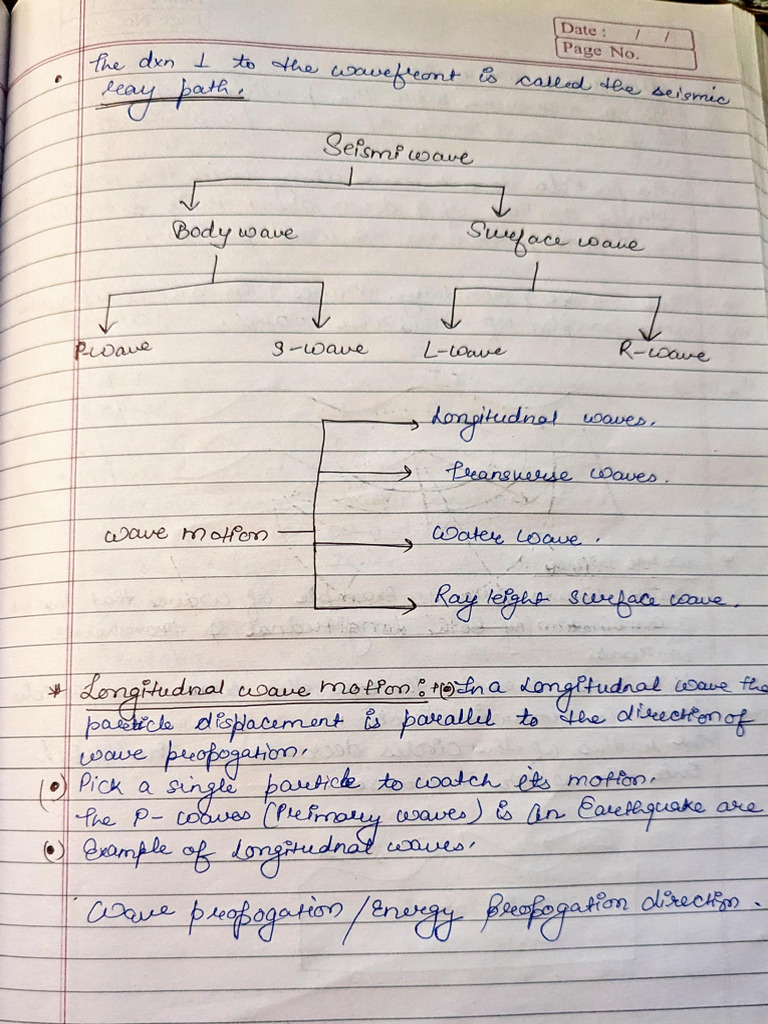 Date : / /
Page No.
• The dxn ⊥ to the wavefront is called the seismic
ray path.
Seismi wave
Body wave Surface wave
P-wave S-wave L-wave R-wave
Longitudnal waves.
transverse waves.
wave motion
Water wave.
Rayleight surface wave.
* Longitudnal wave motion:→(•) In a Longitudnal wave the
particle displacement is parallel to the direction of
wave propogation.
(•) Pick a single particle to watch its motion.
The P- waves (Primary waves) is an Earthquake are
(•) Example of Longitudnal waves.
Wave propogation / Energy propogation direction.